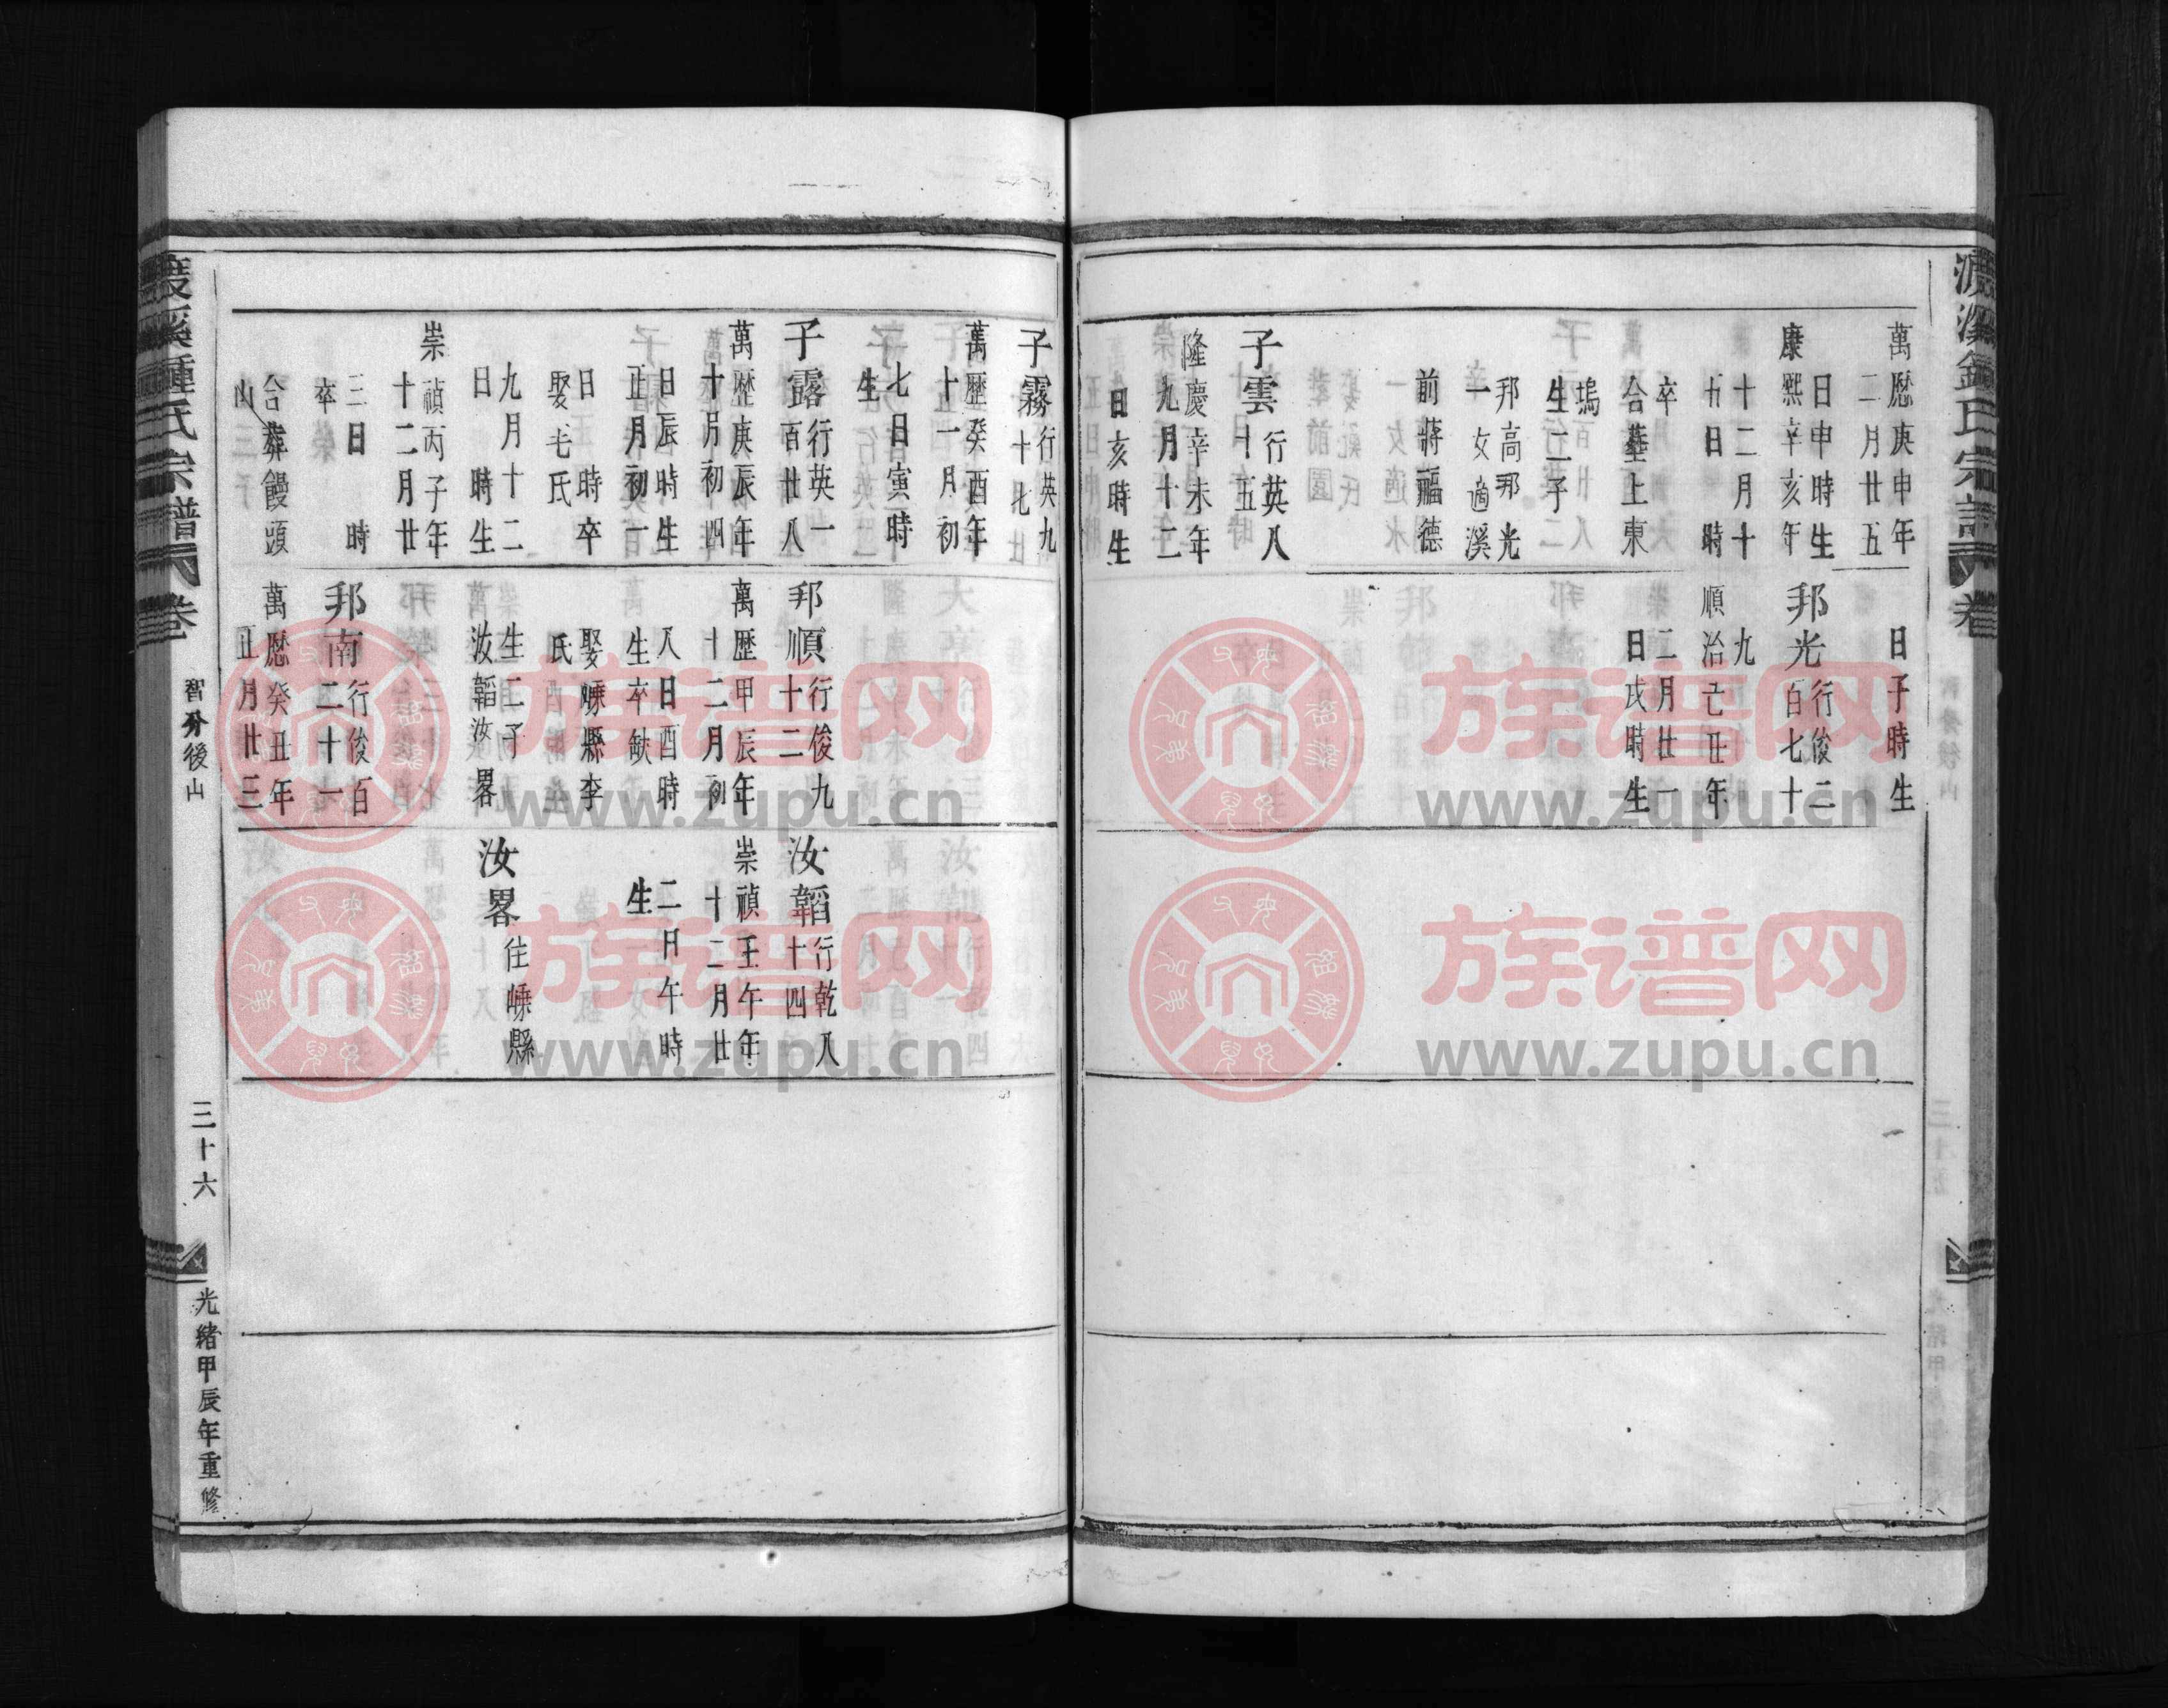 萬歷庚申年
二月廿五
日申時生
康熙辛亥年
十二月十
九日 時
卒
合塟上東
塢
生二子
邦高邦光
一女適溪
前蔣福德
子雲行英八
十五
隆慶辛未年
九月十二
日亥時生
日子時生
邦光行俊二
百七十
九
順治己丑年
二月廿一
日戌時生
子霧行英九
十七
萬歷癸酉年
十一月初
七日寅時
生
子露行英一
百廿八
萬歷庚辰年
十月初四
日辰時生
正月初一
日 時卒
娶毛氏
九月十二
日 時生
崇禎丙子年
十二月廿
三日 時
卒
合葬饅頭
山
邦順行俊九
十二
萬歷甲辰年
十二月初
八日酉時
生卒缺
娶嵊縣李
氏
生二子
汝韜汝畧
邦南行俊百
二十一
萬歷癸丑年
正月廿三
汝韜行乾八
十四
崇禎壬午年
十二月廿
二日午時
生
汝畧住嵊縣
渡溪鍾氏宗譜 卷
智分後山
三十六
光緒甲辰年重修
族谱网
www.zupu.cn
族谱网
www.zupu.cn
族谱网
www.zupu.cn
族谱网
www.zupu.cn